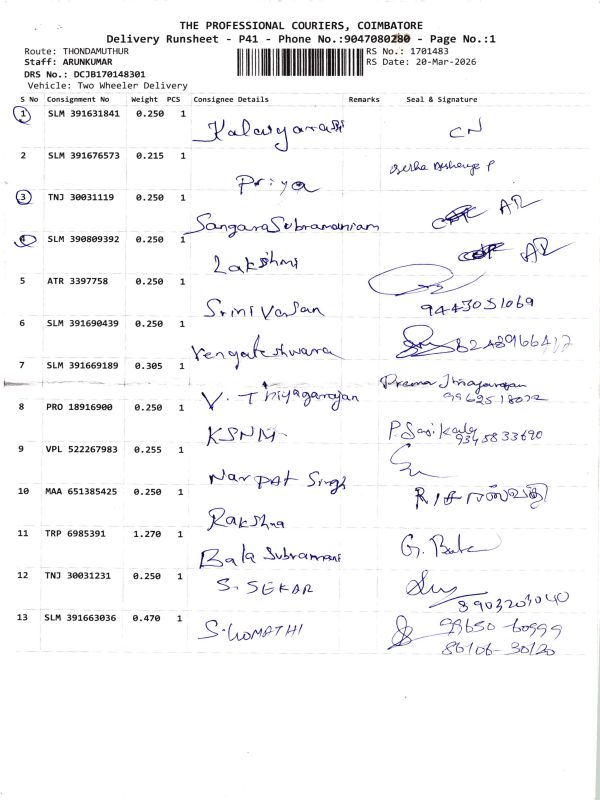 THE PROFESSIONAL COURIERS, COIMBATORE
Delivery Runsheet - P41 - Phone No.:9047080280 - Page No.:1
Route: THONDAMUTHUR RS No.: 1701483
Staff: ARUNKUMAR RS Date: 20-Mar-2026
DRS No.: DCJB170148301
Vehicle: Two Wheeler Delivery
S No Consignment No Weight PCS Consignee Details Remarks Seal & Signature
1 SLM 391631841 0.250 1 CN
2 SLM 391676573 0.215 1 Priya
3 TNJ 30031119 0.250 1 AR
4 SLM 390809392 0.250 1 Lakshmi AR
5 ATR 3397758 0.250 1 Srinivasan 9443051069
6 SLM 391690439 0.250 1 Vengateshwara
7 SLM 391669189 0.305 1 V. Thiyagarajan Prema
8 PRO 18916900 0.250 1 KSNM 9345833690
9 VPL 522267983 0.255 1 Narpat Singh
10 MAA 651385425 0.250 1 Rakshna
11 TRP 6985391 1.270 1 Bala Subramani
12 TNJ 30031231 0.250 1 S. SEKAR 8903203040
13 SLM 391663036 0.470 1 S. GOMATHI 99650-60999
86106-30120